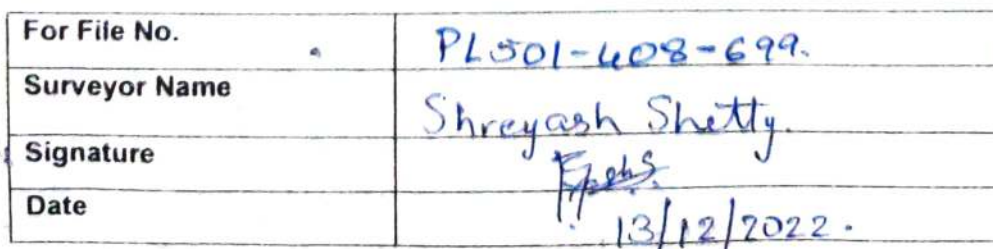 For File No. PL501-408-699.
Surveyor Name Shreyash Shetty.
Signature
Date 13/12/2022.